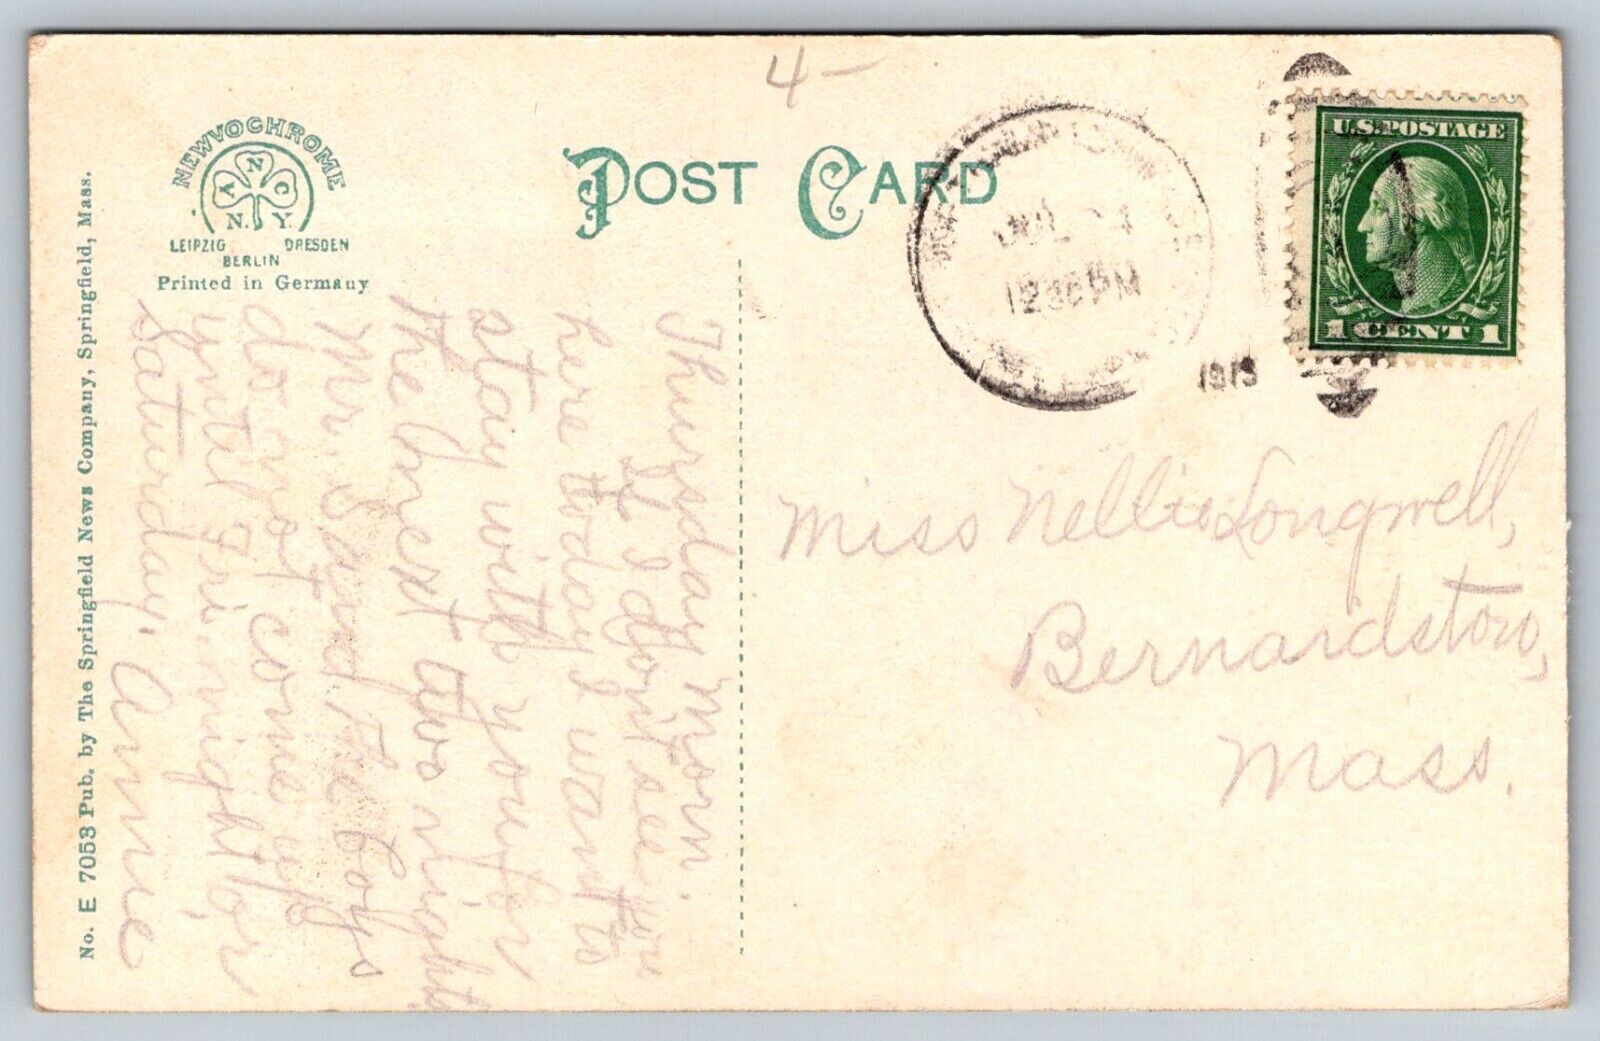 4-
NEWVOCHROME
A N C
N. Y.
LEIPZIG DRESDEN
BERLIN
Printed in Germany
POST CARD
JUL 24
12 30 PM
1913
U.S. POSTAGE
1 CENT 1
No. E 7053 Pub. by The Springfield News Company, Springfield, Mass.
Thursday Morn.
If I don't see you
here today I want to
stay with you for
the next two nights
Mr. S and the boys
do not come up
until Fri. night or
Saturday. Annie
Miss Nellie Longwell,
Bernardston,
Mass.